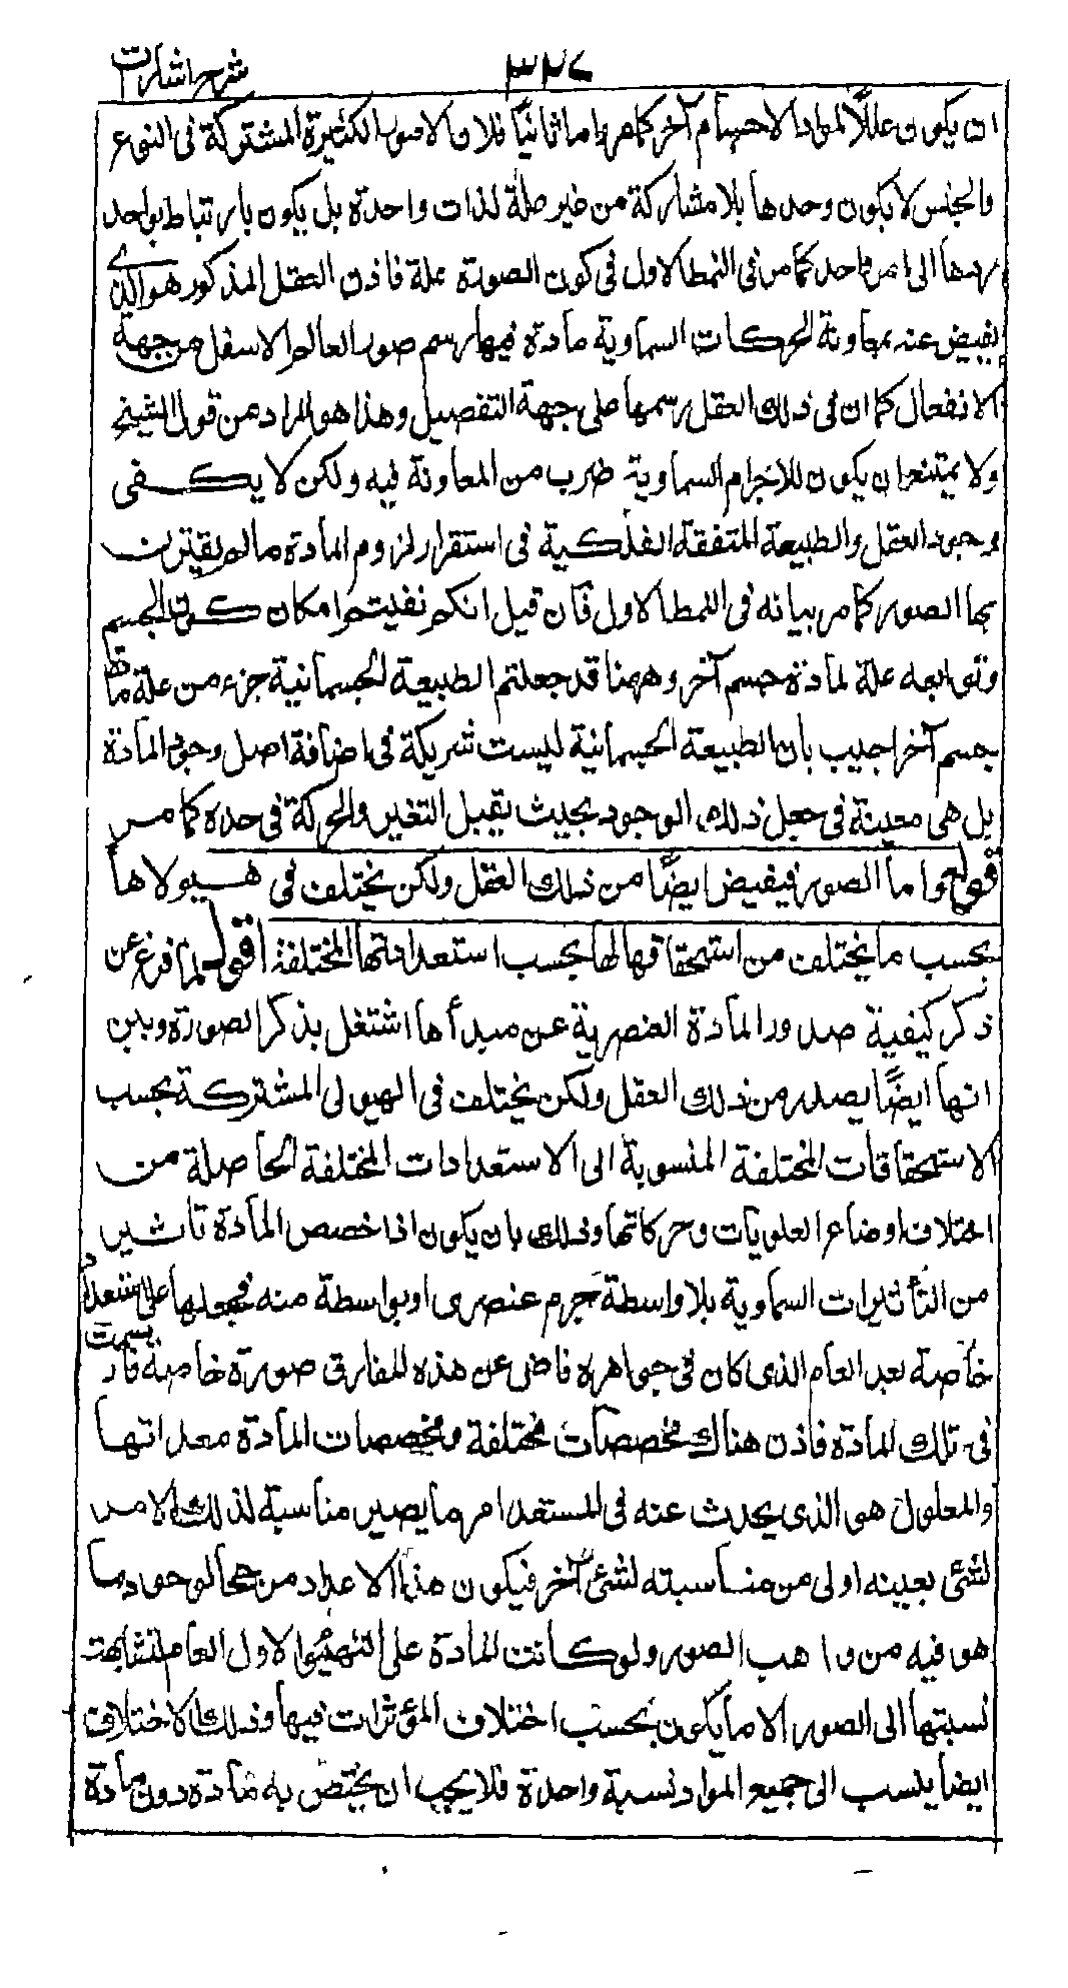 شرح اشارات
۳۲۷
ان يكون عللًا لمواد الاجسام آخر كما مر واما ثانيًا فلان الامور الكثيرة المشتركة فى النوع
والجنس لا يكون وحدها بلا مشاركة من غير علة لذات واحدة بل يكون بارتباط بواحد
يردها الى امر واحد كما مر فى النمط الاول فى كون الصورة علة فاذن العقل المذكور هو الذى
يفيض عنه بمعاونة الحركات السماوية مادة فيها رسم صور العالم الاسفل من جهة
الانفعال كما ان فى ذلك العقل رسمها على جهة التفصيل وهذا هو المراد من قول الشيخ
ولا يمتنع ان يكون للاجرام السماوية ضرب من المعاونة فيه ولكن لا يكفى
وجود العقل والطبيعة المتفقة الفلكية فى استقرار لزوم المادة ما لم يقترن
بها الصور كما مر بيانه فى النمط الاول فان قيل انكم نفيتم امكان كون الجسم
وتوابعه علة لمادة جسم آخر وههنا قد جعلتم الطبيعة الجسمانية جزء من علة مادة
بجسم آخر اجيب بان الطبيعة الجسمانية ليست شريكة فى اضافة اصل وجود المادة
بل هى معينة فى جعل ذلك الوجود بحيث يقبل التغير والحركة فى حده كما مر
قوله واما الصور فيفيض ايضًا من ذلك العقل ولكن يختلف فى هيولاها
بحسب ما يختلف من استحقاقها لها بحسب استعداداتها المختلفة اقول لما فرغ عن
ذكر كيفية صدور المادة العنصرية عن مبدأها اشتغل بذكر الصورة وبين
انها ايضًا يصدر من ذلك العقل ولكن يختلف فى الهيولى المشتركة بحسب
الاستحقاقات المختلفة المنسوبة الى الاستعدادات المختلفة الحاصلة من
اختلاف اوضاع العلويات وحركاتها وذلك بان يكون اذا خصص المادة تاثير
من التأثيرات السماوية بلا واسطة جرم عنصرى او بواسطة منه فيجعلها على استعداد
خاصة بعد العام الذى كان فى جواهره فاض عن هذه المفارق صورة خاصة فارتسمت
فى تلك المادة فاذن هناك مخصصات مختلفة ومخصصات المادة معداتها
والمعلول هو الذى يحدث عنه فى المستعد امر ما يصير مناسبة لذلك الامر
لشئ بعينه اولى من مناسبته لشئ آخر فيكون هذا الاعداد مرجحا لوجود ما
هو فيه من واهب الصور ولو كانت المادة على التهيؤ الاول العام لتشابهت
نسبتها الى الصور الا ما يكون بحسب اختلاف المؤثرات فيها وذلك الاختلاف
ايضا ينسب الى جميع المواد نسبة واحدة فلا يجب ان يختص به مادة دون مادة